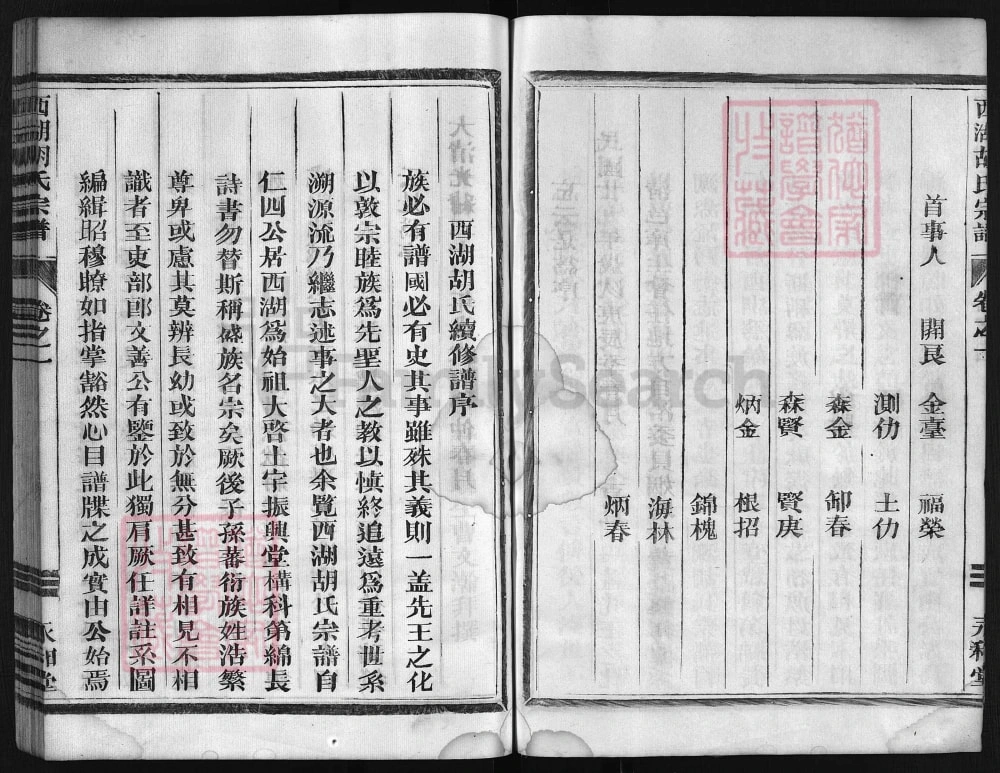 西湖胡氏宗譜
卷之一
首事人 開良 金臺 福榮
測仂 土仂
森金 卸春
森賢 賢庚
炳金 根招
錦槐
海林
炳春
西湖胡氏續修譜序
族必有譜國必有史其事雖殊其義則一盖先王之化
以敦宗睦族爲先聖人之教以愼終追遠爲重考世系
溯源流乃繼志述事之大者也余覽西湖胡氏宗譜自
仁四公居西湖爲始祖大啓土宇振興堂構科第綿長
詩書勿替斯稱盛族名宗矣厥後子孫蕃衍族姓浩繁
尊卑或慮其莫辨長幼或致於無分甚致有相見不相
識者至吏部郎文善公有鑒於此獨肩厥任詳註系圖
編緝昭穆瞭如指掌豁然心目譜牒之成實由公始焉
西湖胡氏宗譜
卷之一
FamilySearch